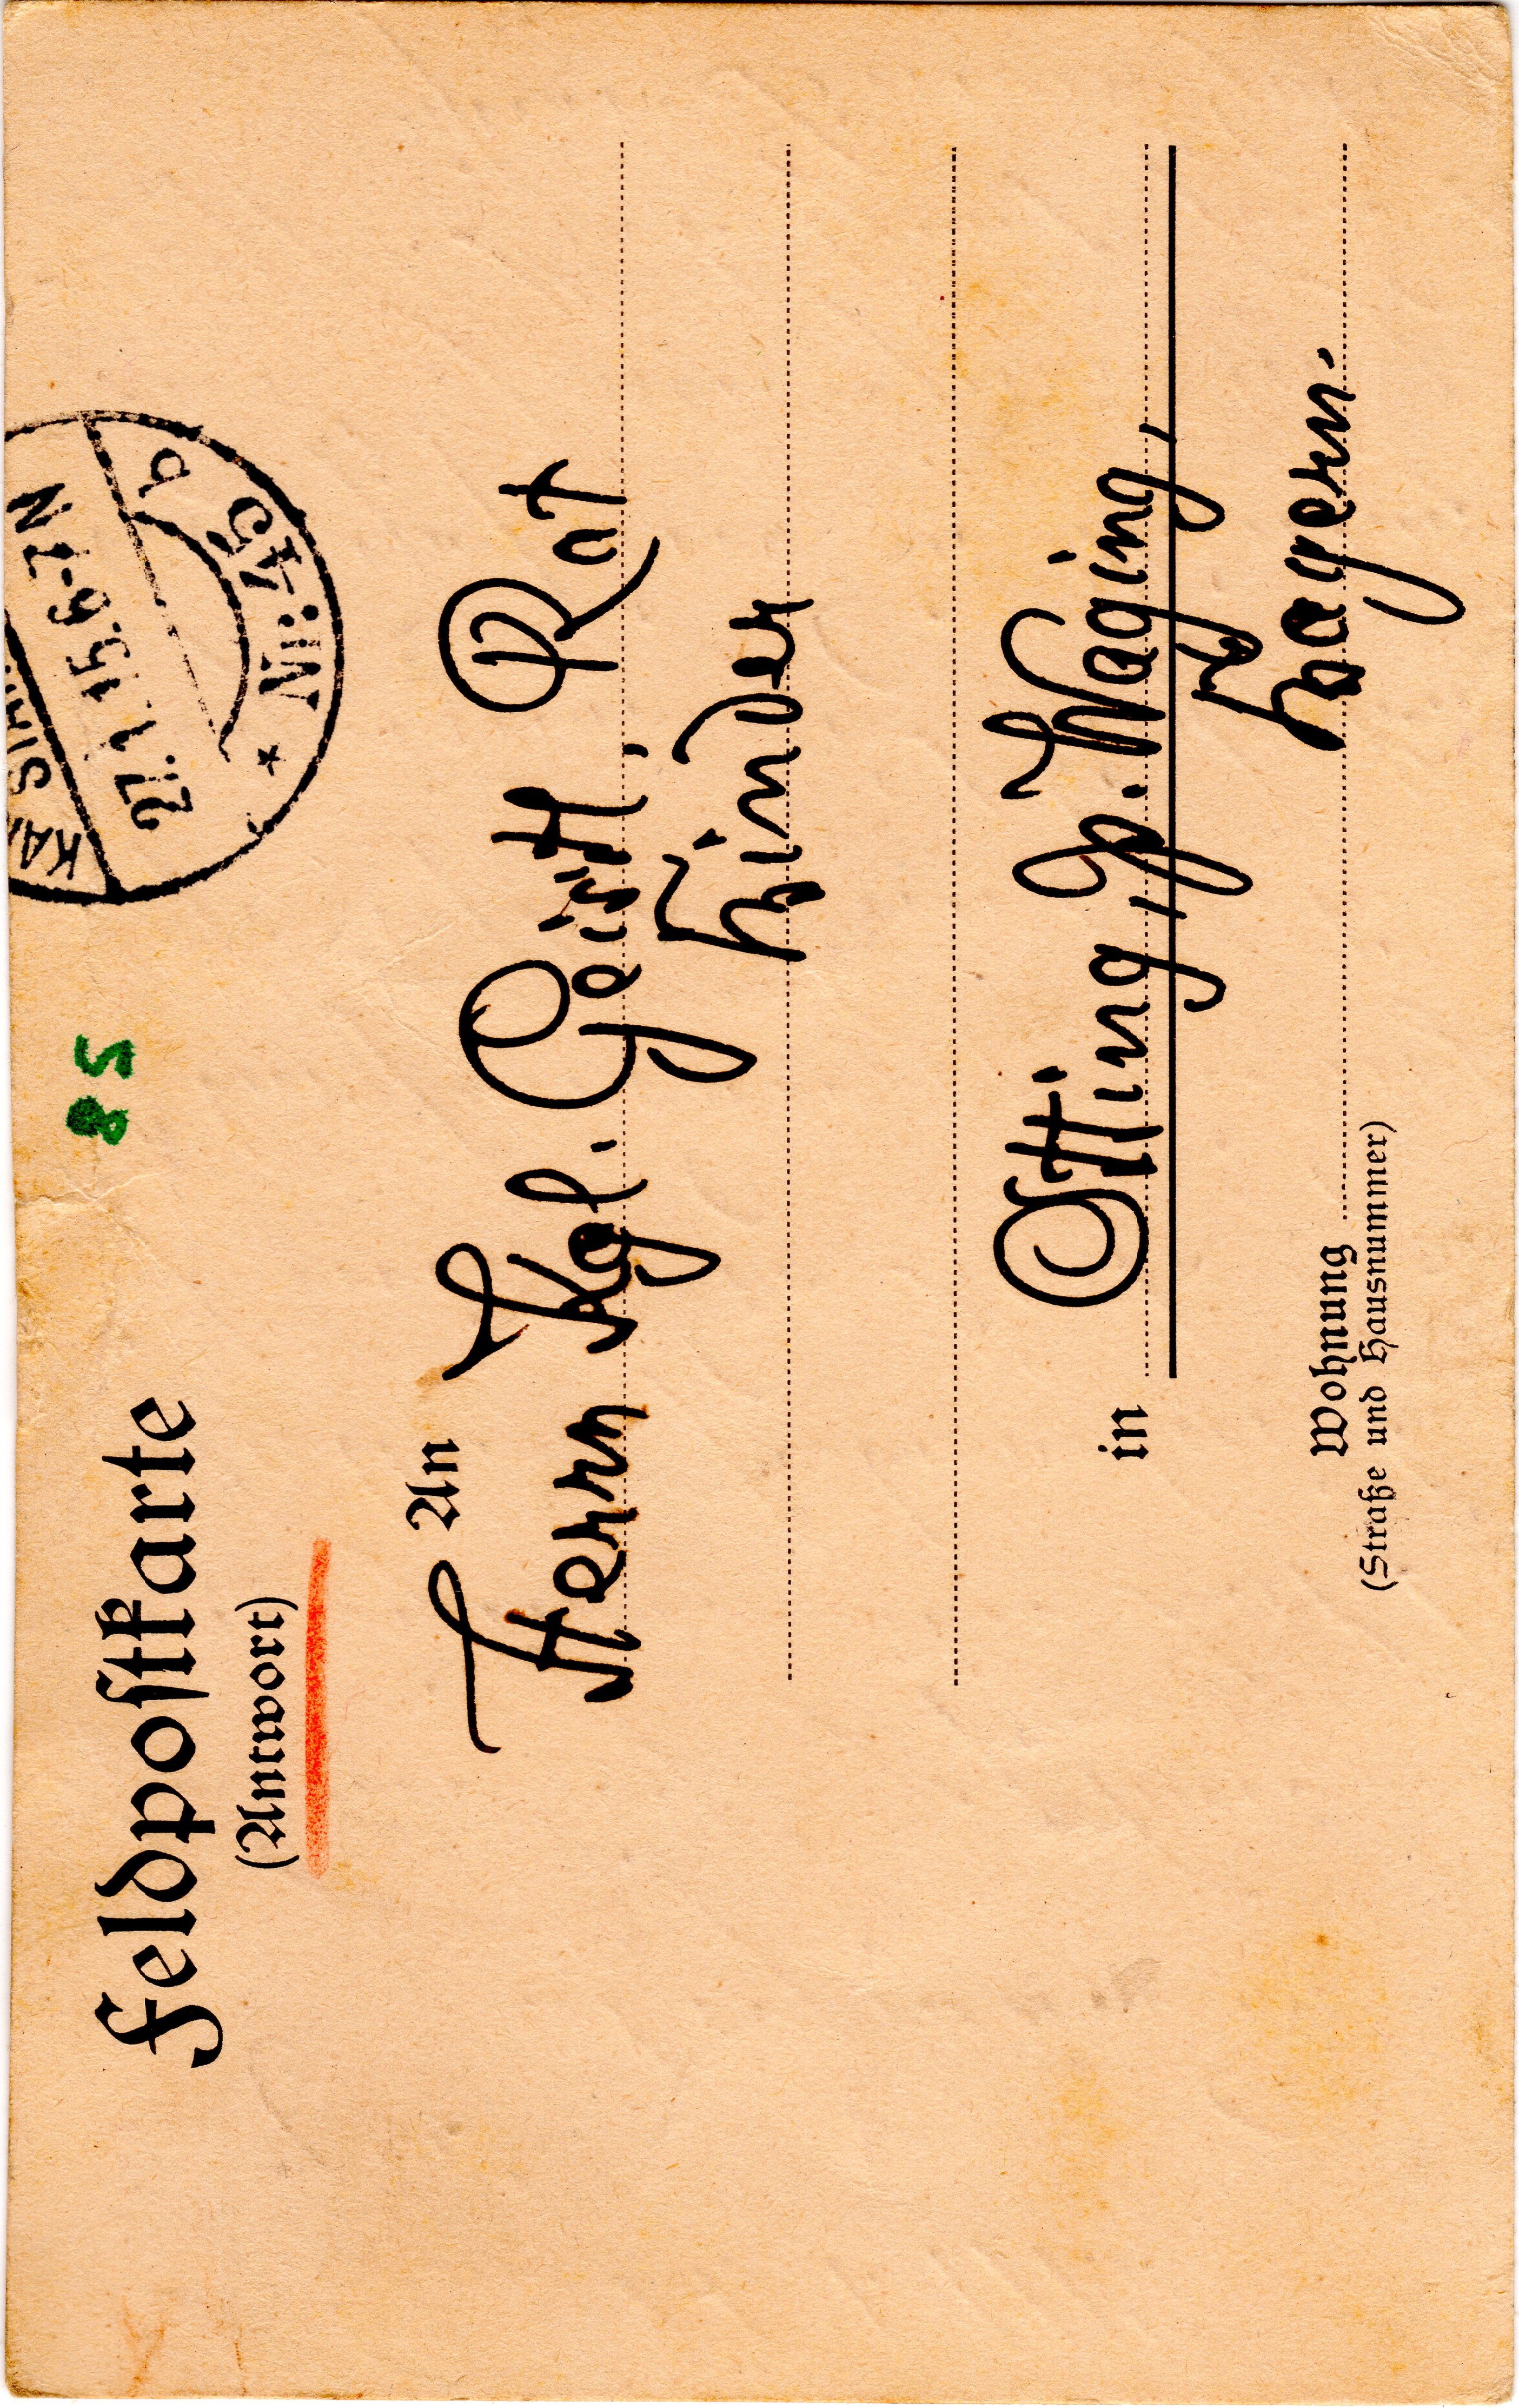 Feldpostkarte
(Antwort)
85
27.1.15.6-7N
b
* Nr: 45
An
Herrn Kgl. Geistl. Rat
Binder
in Otting, P. Waging,
Bayern.
Wohnung
(Straße und Hausnummer)